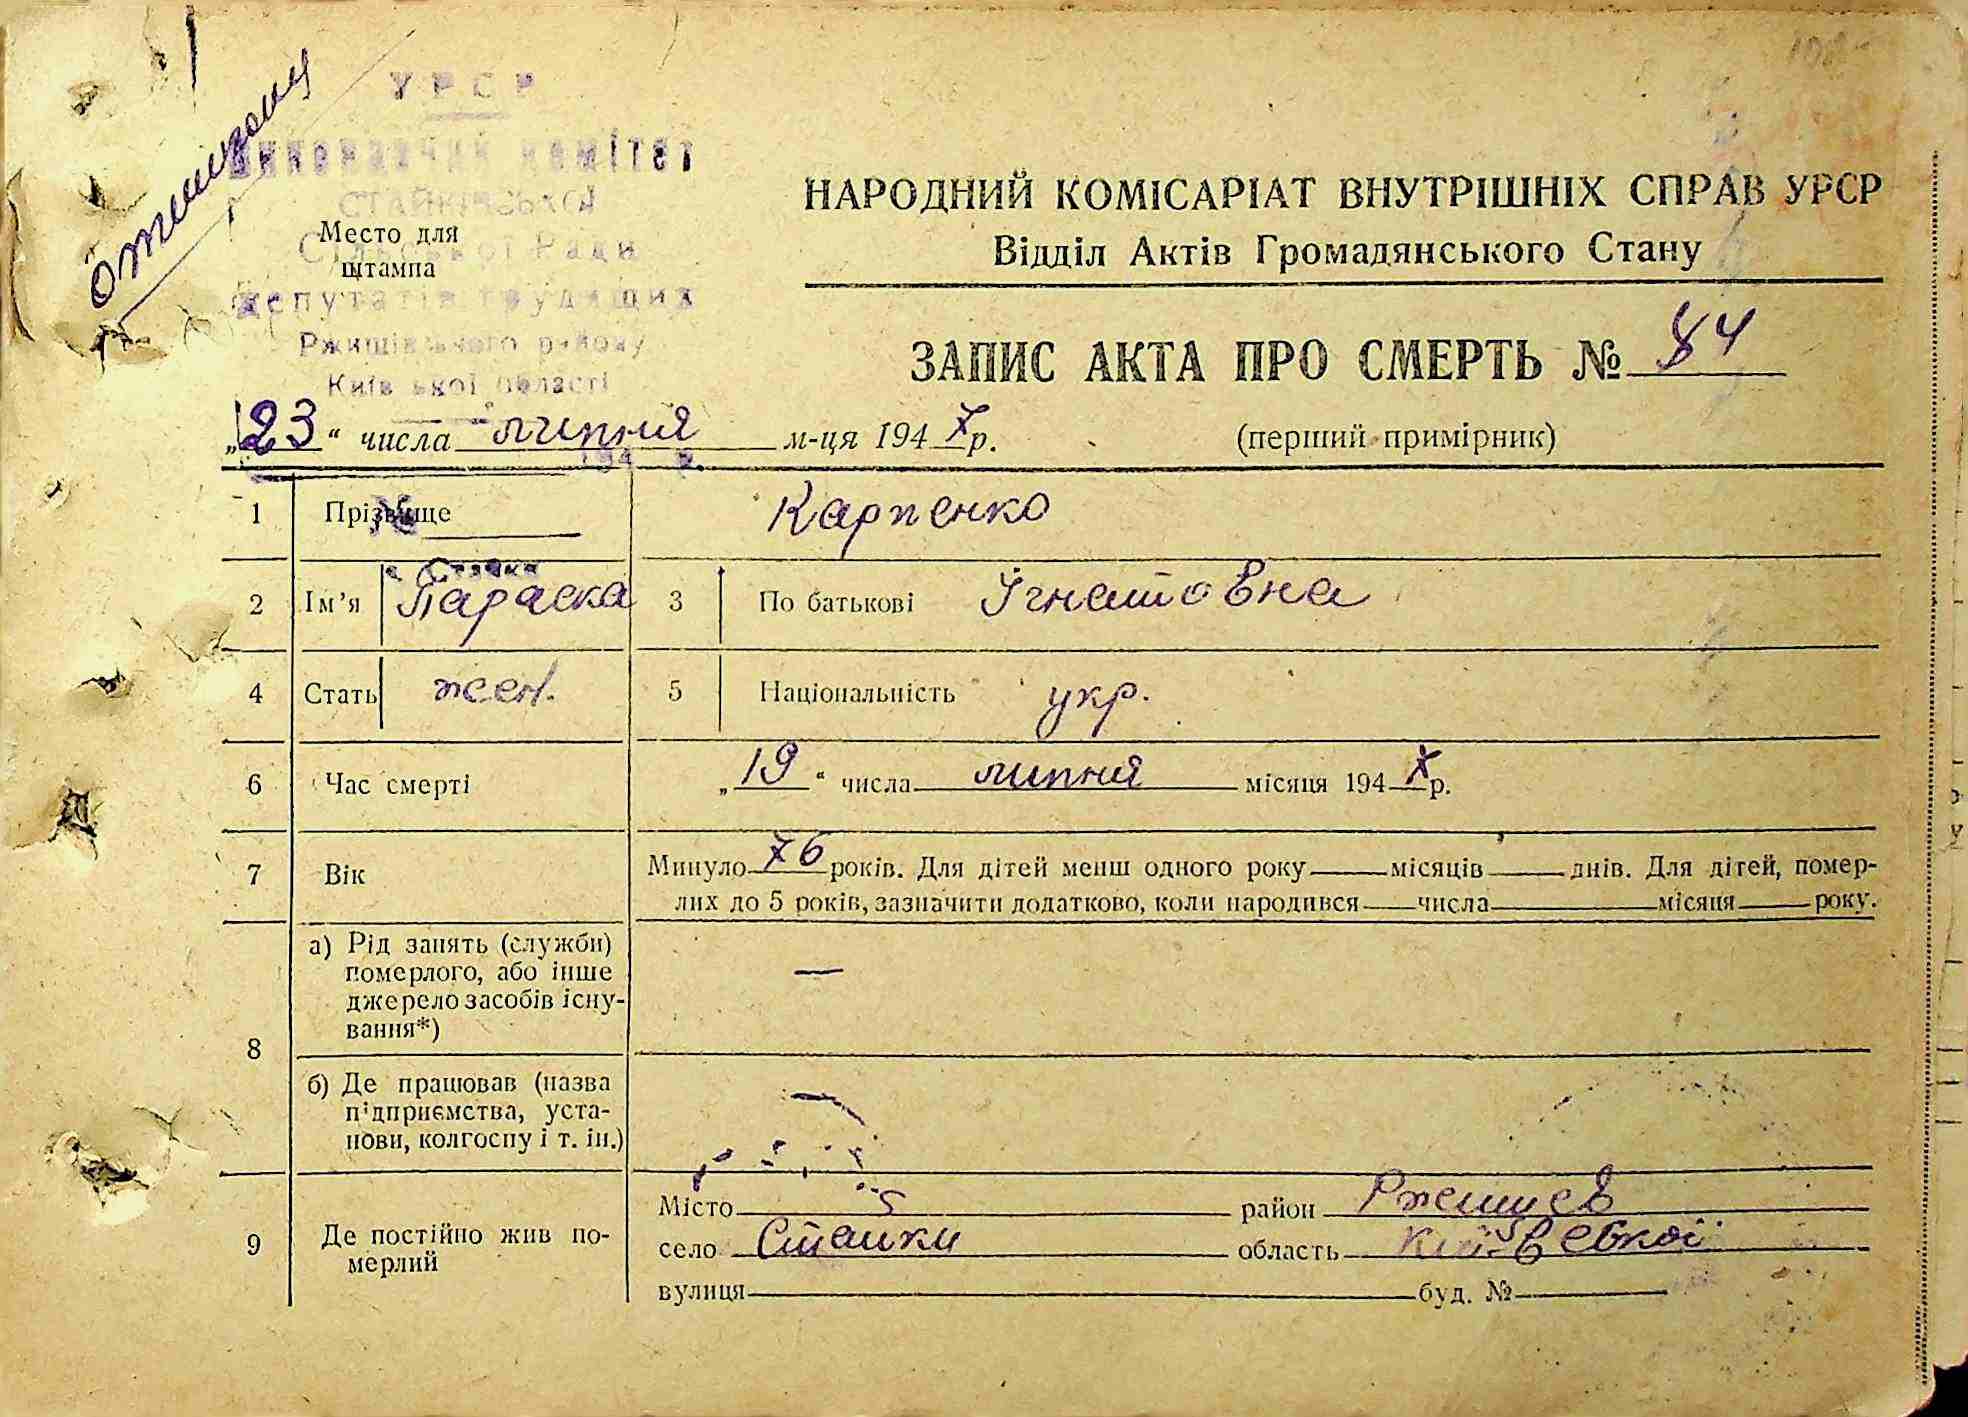 УРСР
Виконавчий комітет
СТАЙКІВСЬКОЇ
Сільської Ради
депутатів трудящих
Ржищівського району
Київської області
194 р.
№
с. Стайки
Место для
штампа
НАРОДНИЙ КОМІСАРІАТ ВНУТРІШНІХ СПРАВ УРСР
Відділ Актів Громадянського Стану
ЗАПИС АКТА ПРО СМЕРТЬ № 84
„23“ числа липня м-ця 1947 р.
(перший примірник)
1 Прізвище Карпенко
2 Ім’я Параска 3 По батькові Ігнатовна
4 Стать жен. 5 Національність укр.
6 Час смерті „19“ числа липня місяця 1947 р.
7 Вік Минуло 76 років. Для дітей менш одного року місяців днів. Для дітей, помер-
лих до 5 років, зазначити додатково, коли народився числа місяця року.
8 а) Рід занять (служби)
померлого, або інше
джерело засобів існу-
вання*) —
б) Де працював (назва
підприємства, уста-
нови, колгоспу і т. ін.)
9 Де постійно жив по-
мерлий
Місто район Ржищев
село Стайки область Київської
вулиця буд. №